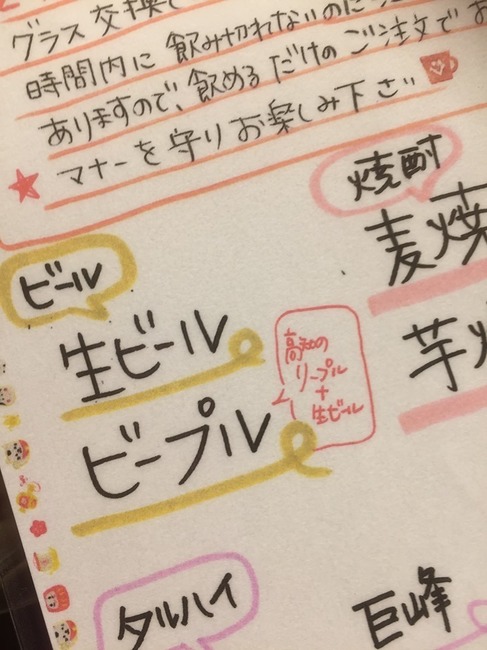 グラス交換
時間内に飲み切れないのに
ありますので、飲めるだけのご注文でお
マナーを守りお楽しみ下さい
焼酎
麦焼
芋
ビール
生ビール
高知の
リープル
+
生ビール
ビープル
タルハイ
巨峰